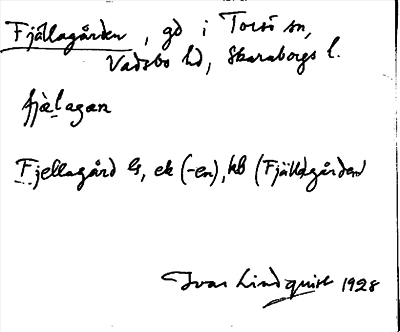 Fjällagården, gd i Torsö sn,
Vadsbo hd, Skaraborgs l.
fjæ̀lagan
Fjellagård ls, ek (-en), kb (Fjällagården)
Ivar Lindquist 1928